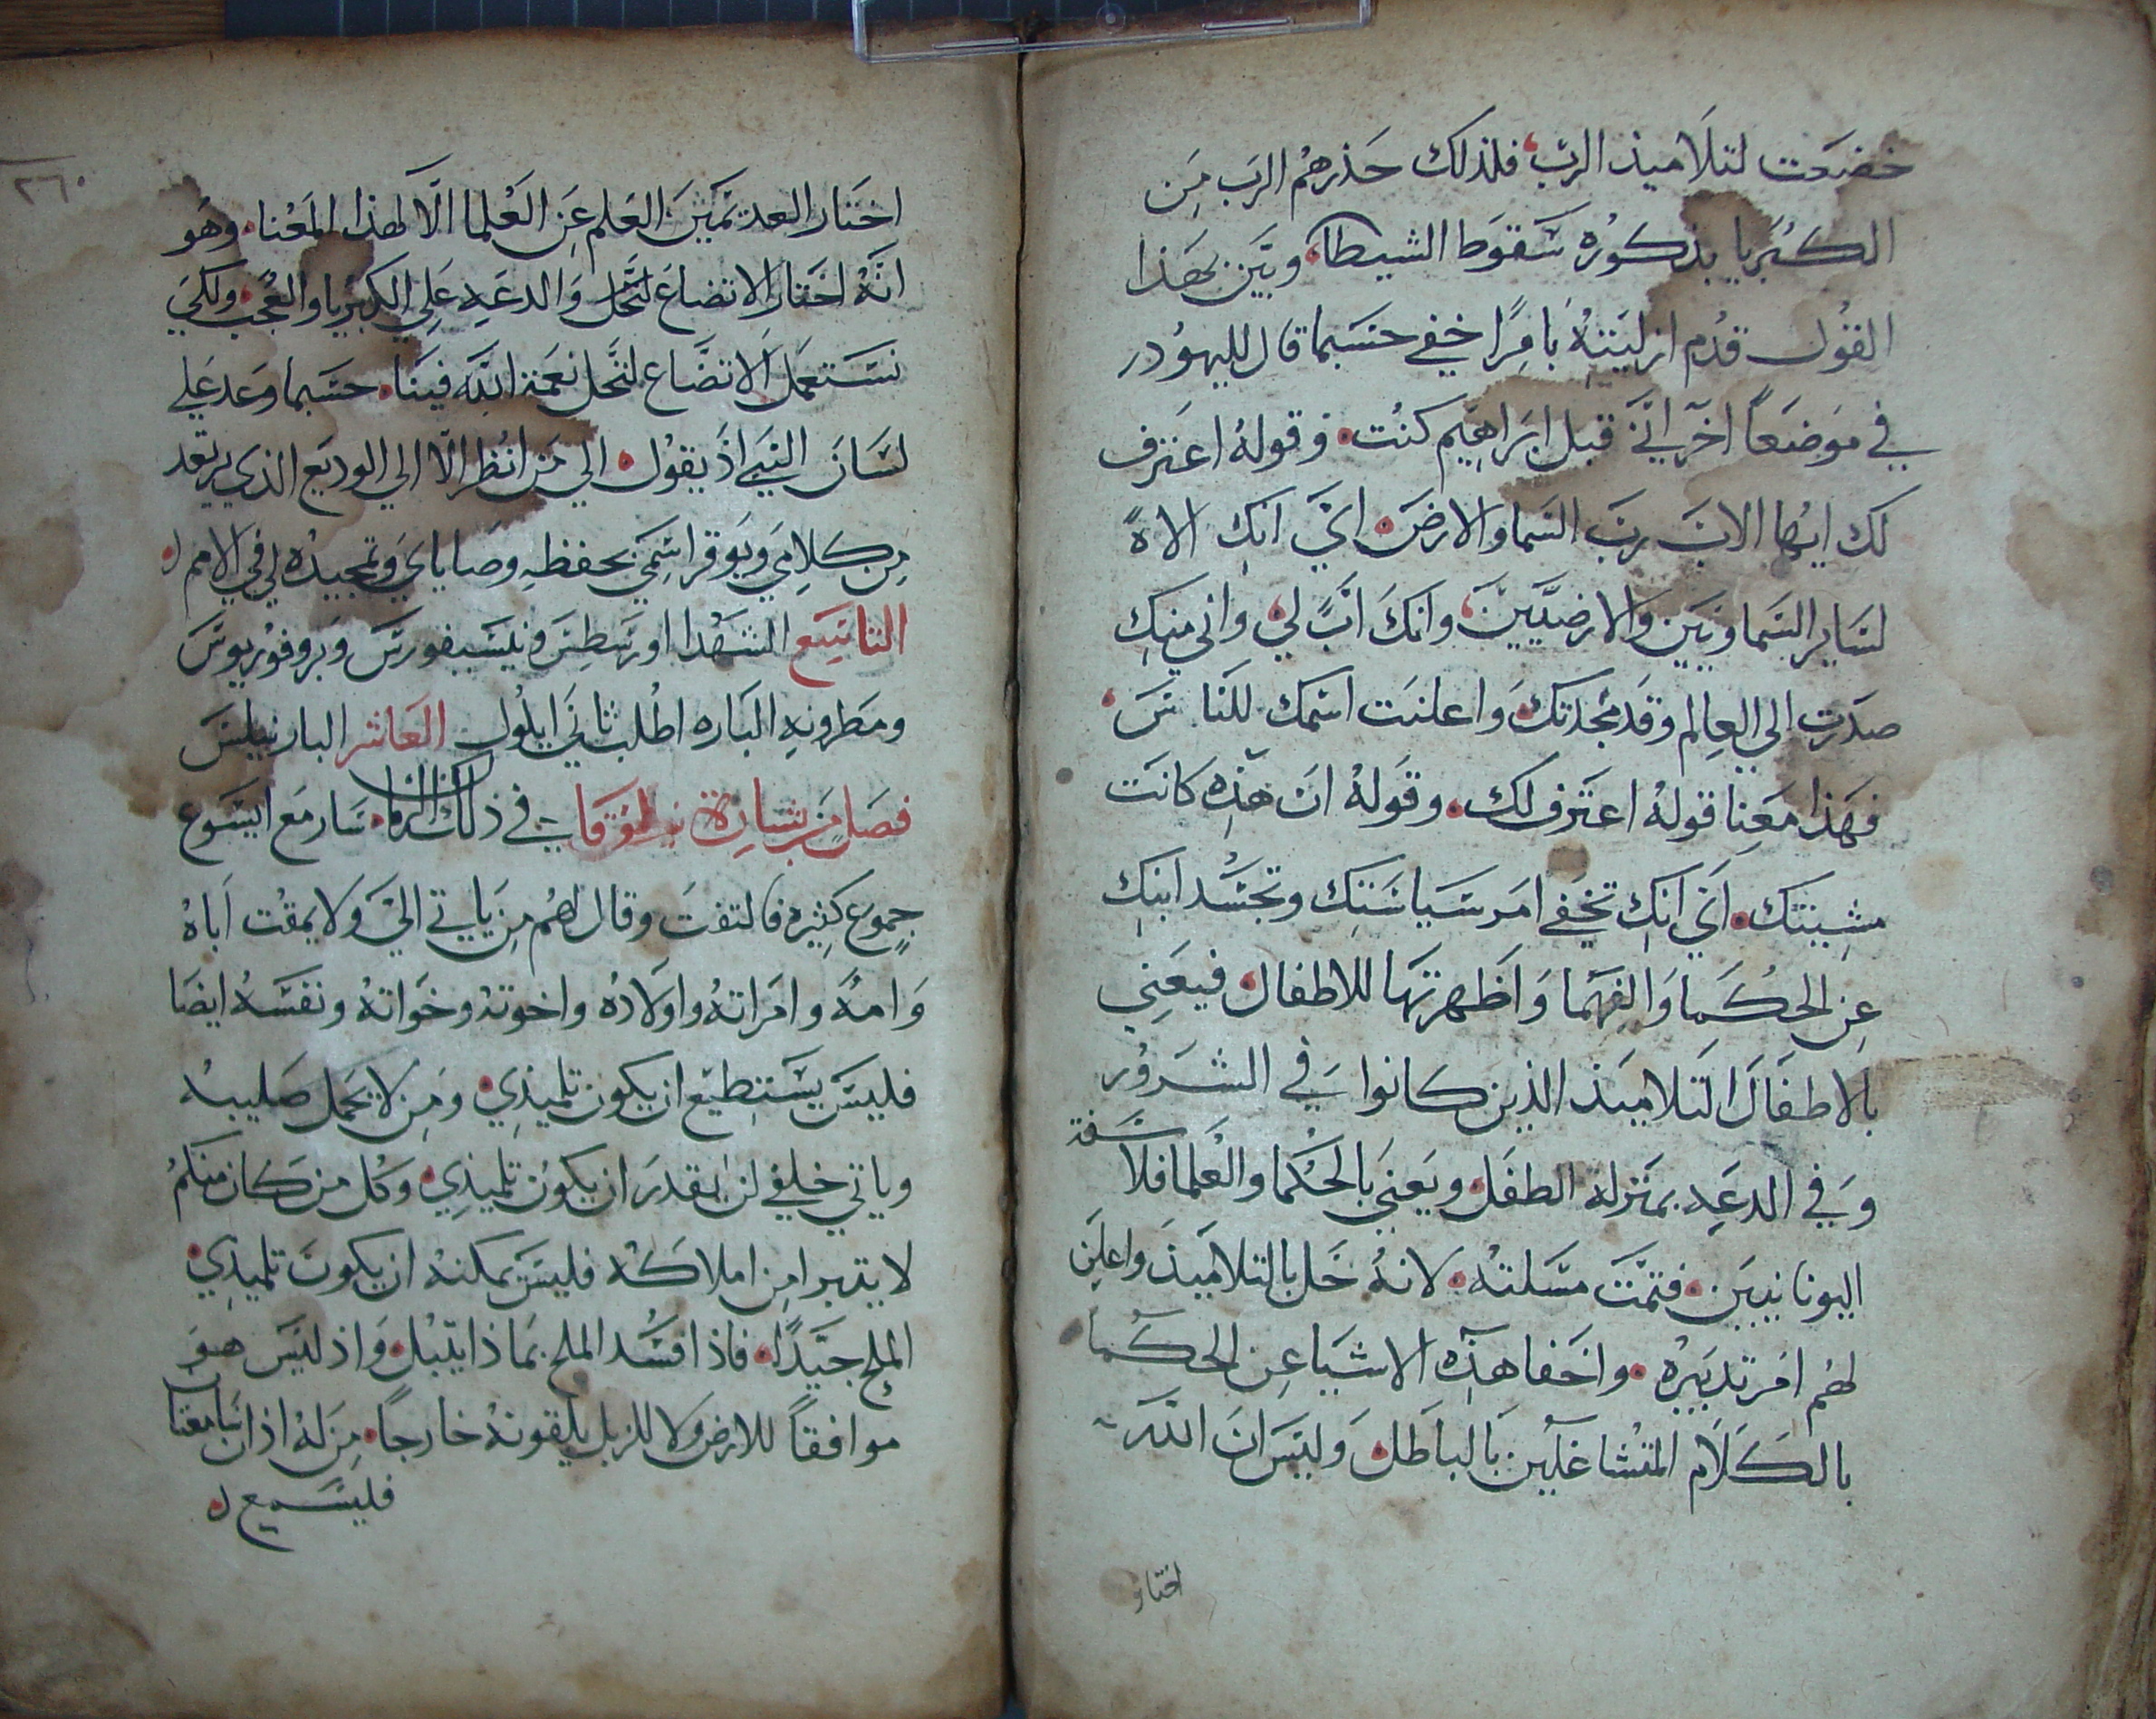 خضعت لتلاميذ الرب، فلذلك حذرهم الرب من
الكبريا بذكوره سقوط الشيطا، وبين بهذا
القول قدم ازليته بامرًا خفي حسبما قال لليهود
في موضعاً اخر اني قبل ابراهيم كنت. وقوله اعترف
لك ايها الاب رب السما والارض. اي انك الاهً
لساير السماويين والارضيين، وانك ابً لي، واني منك
صدرت الي العالم وقد مجدتك، واعلنت اسمك للناس،
فهذا معنا قوله اعترف لك. وقوله ان هذه كانت
مشيتك. اي انك تخفي امر سياستك وتجسد ابنك
عن الحكما والفهما واظهرتها للاطفال، فيعني
بالاطفال التلاميذ الذين كانوا في الشرور
وفي الدعه بمنزله الطفل، ويعني بالحكما والعلما فلاسفة
اليونانيين. فتمت مسلته. لانه حل بالتلاميذ واعلن
لهم امر تدبيره. واخفا هذه الاشيا عن الحكما
بالكلام المتشاغلين بالباطل، وليس ان الله
اختار
٢٦٠
اختار العلم عن العلما الّا لهذا المعنا. وهو
انه اختار الاتضاع لنحل والدعه علي الكبريا والعجب، ولكي
نستعمل الاتضاع لتحل نعمة الله فينا. حسبما وعد علي
لسان النبي اذ يقول. الي من انظر الّا الي الوديع الذي يرتعد
من كلامي ويوقر اسمي بحفظه وصاياي وتمجيده لي في الامم
التاسع الشهدا اورسطس ونيسيفورس وبروفوريوس
ومطرونه الباره اطلب ثاني ايلول العاشر البار نيلس
فصل من بشارة لوقا في ذلك الزمان. سار مع ايسوع
جموع كثيره فالتفت وقال لهم من ياتي اليّ ولا يمقت اباه
وامه وامراته واولاده واخوته وخواته ونفسه ايضا
فليس يستطيع ان يكون تلميذي. ومن لا يحمل صليبه
وياتي خلفي لن يقدر ان يكون تلميذي. وكل من كان منكم
لا يتبرا من املاكه فليس يمكنه ان يكون تلميذي.
الملح جيدًا. فاذا فسد الملح بماذا يتبل. واذ ليس هو
موافقاً للارض ولا للزبل يلقونه خارجًا. من له اذان سامعتا
فليسمع